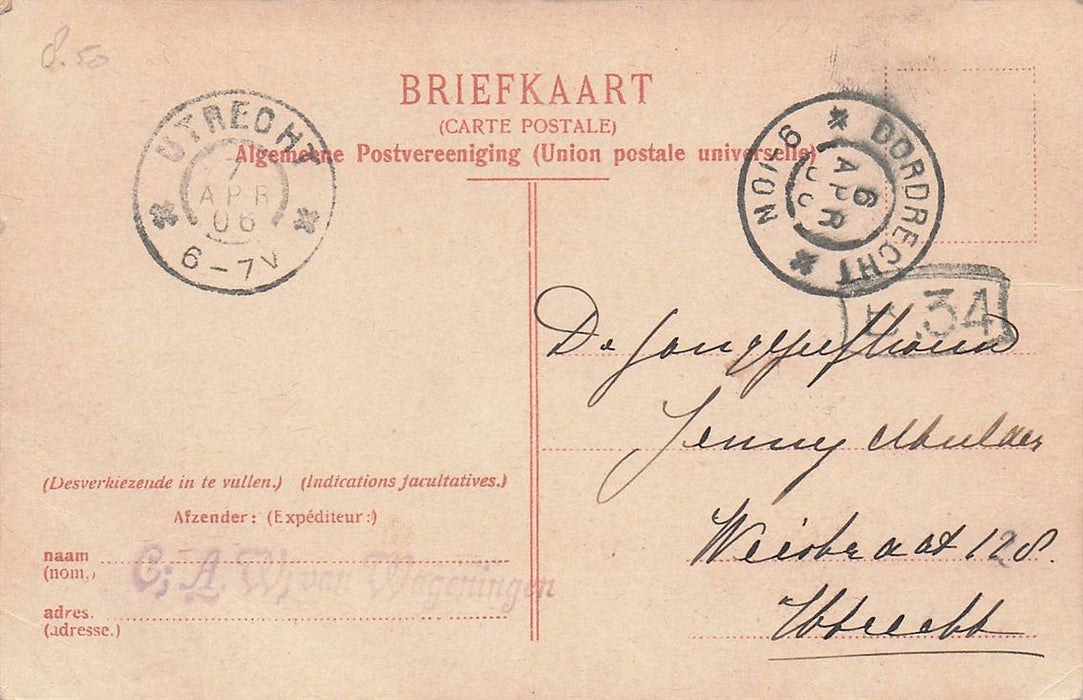 8.50
BRIEFKAART
(CARTE POSTALE)
Algemeene Postvereeniging (Union postale universelle)
UTRECHT
7
APR
06
6-7V
DORDRECHT
6
APR
9-10N
34
De Jongejufvrouw
Jenny Mulder
Weistraat 128.
Utrecht
(Desverkiezende in te vullen.) (Indications facultatives.)
Afzender: (Expéditeur:)
naam
(nom,)
C. A. W. van Wageningen
adres.
(adresse.)